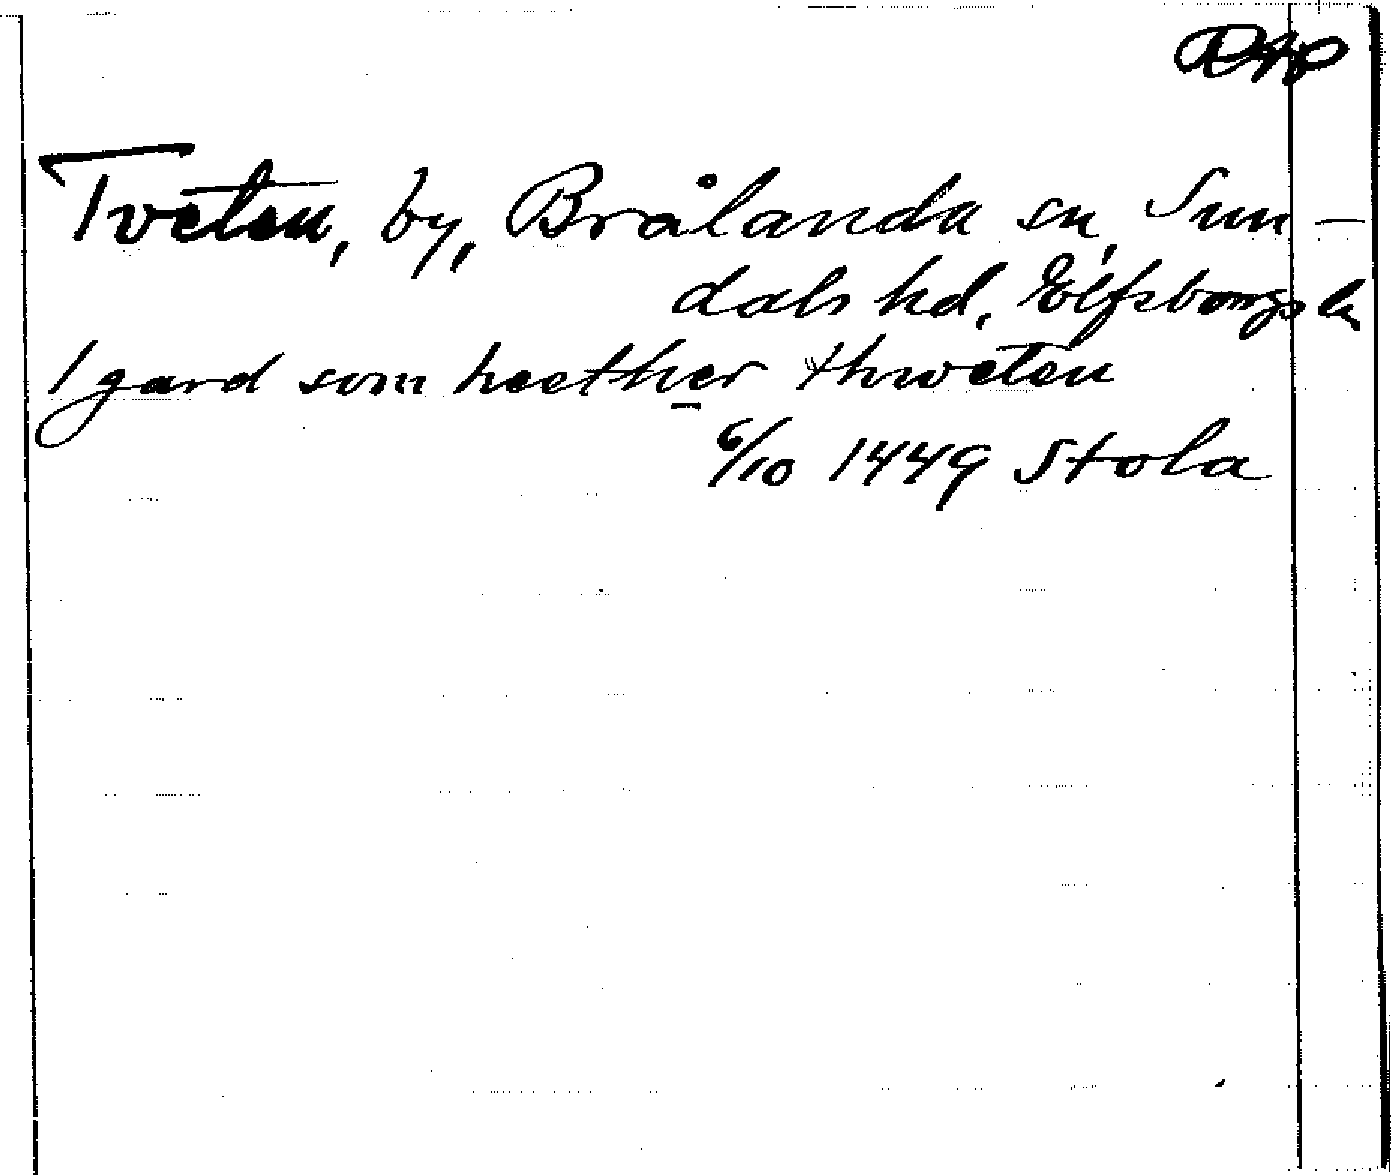 Tveten, by, Brålanda sn, Sun-
dals hd, Elfsborgs ln
1 gard som heether thweten
6/10 1449 Stola